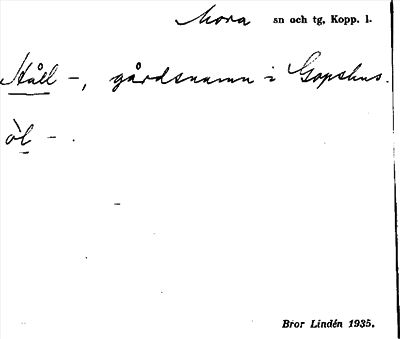 Mora sn och tg, Kopp. l.
Ståll -, gårdsnamn i Gopshus.
òl -.
Bror Lindén 1935.